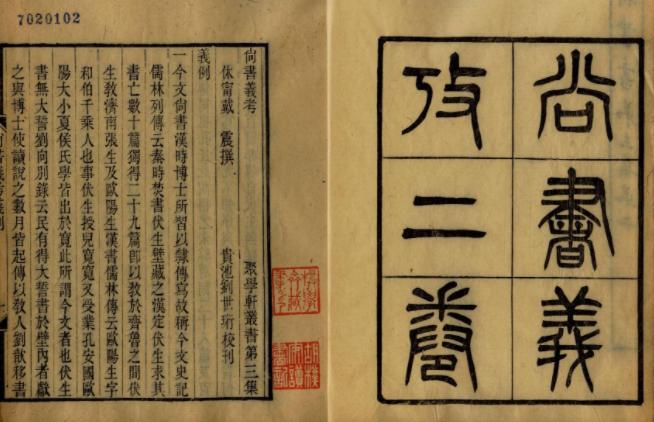 尚書義
攷二卷
7020102
尙書義考
聚學軒叢書第三集
休甯戴　震撰
貴池劉世珩校刊
義例
一今文尙書漢時博士所習以隸傳寫故稱今文史記
儒林列傳云秦時焚書伏生壁藏之漢定伏生求其
書亡數十篇獨得二十九篇卽以敎於齊魯之間伏
生敎濟南張生及歐陽生漢書儒林傳云歐陽生字
和伯千乘人也事伏生授兒寬寬又受業孔安國歐
陽大小夏侯氏學皆出於寬此所謂今文者也伏生
書無大誓劉向別錄云民有得大誓書於壁內者獻
之與博士使讀說之數月皆起傳以敎人劉歆移書